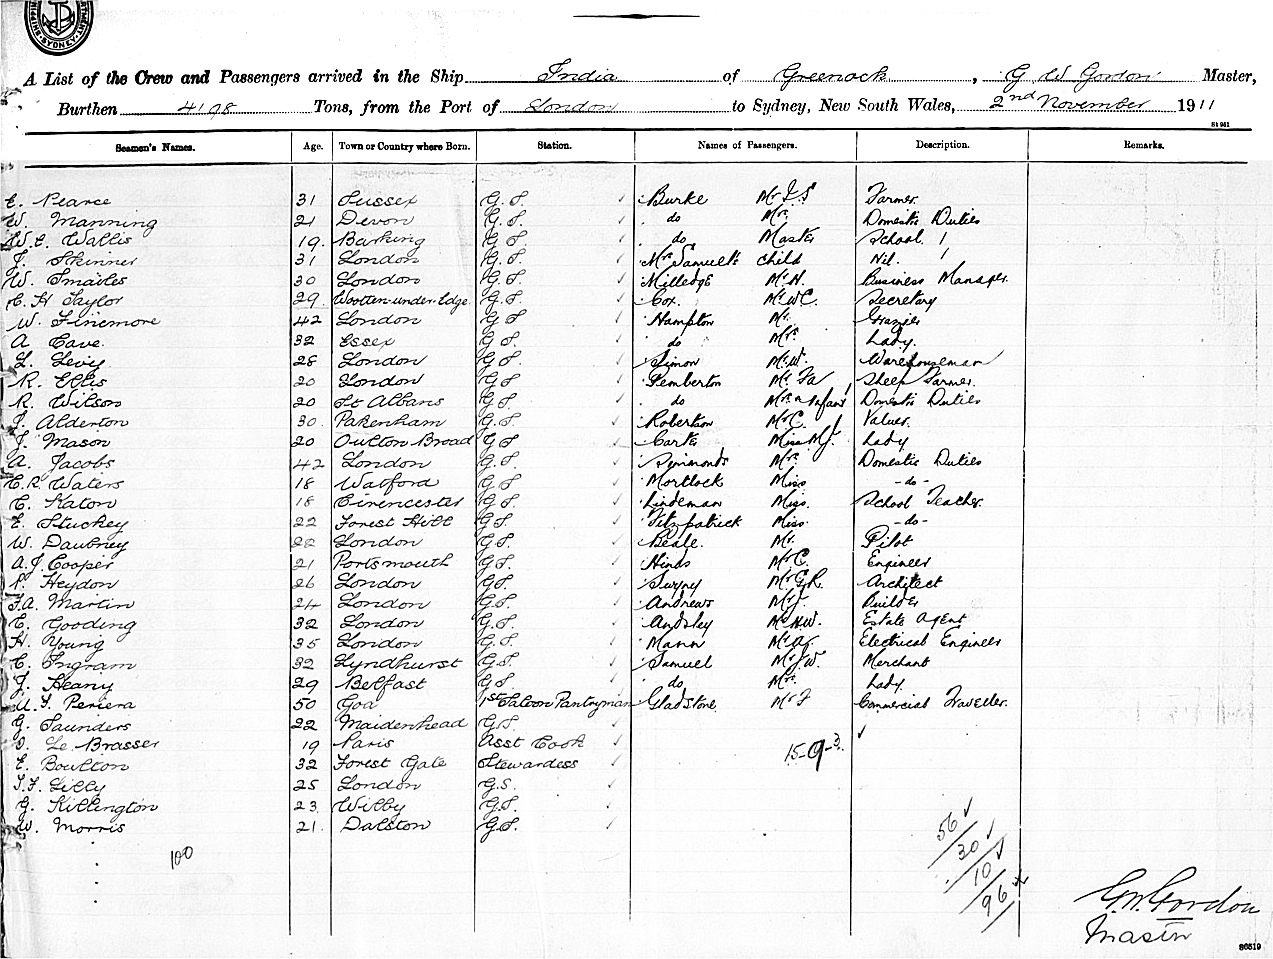 SYDNEY
A List of the Crew and Passengers arrived in the Ship India of Greenock, G W Gordon Master,
Burthen 4198 Tons, from the Port of London to Sydney, New South Wales, 2nd November 1911
S1961
Seamen's Names. Age. Town or Country where Born. Station. Names of Passengers. Description. Remarks.
E. Pearce 31 Sussex G.S. Burke Mr J.S Farmer.
W. Manning 21 Devon G.S. do Mrs. Domestic Duties
W.E. Wallis 19. Barking G.S. do Master School. 1
J. Skinner 31 London G.S. Mrs Samuel's child Nil. 1
W. Smailes 30 London G.S. Milledge Mr H. Business Manager.
C. H Taylor 29. Wootten-under-Edge. G.S. Cox. Mr W C. Secretary
W. Finemore 42 London G S Hampton Mr. Grazier
A Cave. 32 Essex G S. do Mrs. Lady.
L. Levy 28 London G S Simon Mr W. Warehouseman
R. Ellis 20 London G S Pemberton Mr. Sheep Farmer.
R. Wilson 20 St Albans G.S do Mrs & Infant Domestic Duties
J. Alderton 30. Pakenham G.S. Robertson Mr C. Valuer.
J. Mason 20 Oulton Broad G S Carter Miss M J. Lady
A. Jacobs 42 London G.S. Simmonds Mrs Domestic Duties
E.R. Waters 18 Watford G S. Mortlock Miss -do-
C. Katon 18 Cirencester G S. Lindeman Miss. School Teacher.
E. Stuckey 22 Forest Hill G S. Fitzpatrick Miss. -do-
W. Daubney 22 London G S. Beale. Mr. Pilot
A.J. Cooper 21 Portsmouth G.S. Hinds Mr C. Engineer
P. Heydon 26 London G S. Swyny Mr G.R. Architect
F.A. Martin 24 London G.S. Andrews Mr J. Builder
C. Gooding 32 London G.S. Audsley Mr H.W. Estate Agent
H. Young 35 London G.S. Mann Mr A. Electrical Engineer
C. Ingram 32 Lyndhurst G.S. Samuel Mr J.W. Merchant
J. Heany 29 Belfast G S do Mrs. Lady.
Periera 50 Goa 1st Saloon Pantryman Gladstone Mr J Commercial Traveller.
G. Saunders 22 Maidenhead G.S.
Le Brasser 19 Paris Asst Cook
E. Boulton 32 Forest Gate Stewardess 15-9-3.
Lilly 25 London G.S.
G. Killington 23. Wilby G.S.
W. Morris 21. Dalston G.S.
100
56
30
10
96
G.W. Gordon
Master
S6519